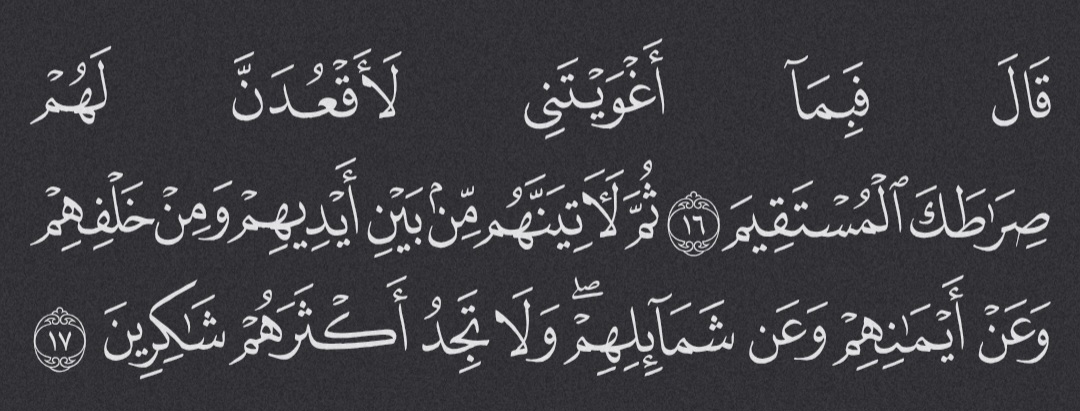 قَالَ فَبِمَآ أَغۡوَيۡتَنِي لَأَقۡعُدَنَّ لَهُمۡ
صِرَٰطَكَ ٱلۡمُسۡتَقِيمَ ١٦ ثُمَّ لَأٓتِيَنَّهُم مِّنۢ بَيۡنِ أَيۡدِيهِمۡ وَمِنۡ خَلۡفِهِمۡ
وَعَنۡ أَيۡمَٰنِهِمۡ وَعَن شَمَآئِلِهِمۡۖ وَلَا تَجِدُ أَكۡثَرَهُمۡ شَٰكِرِينَ ١٧